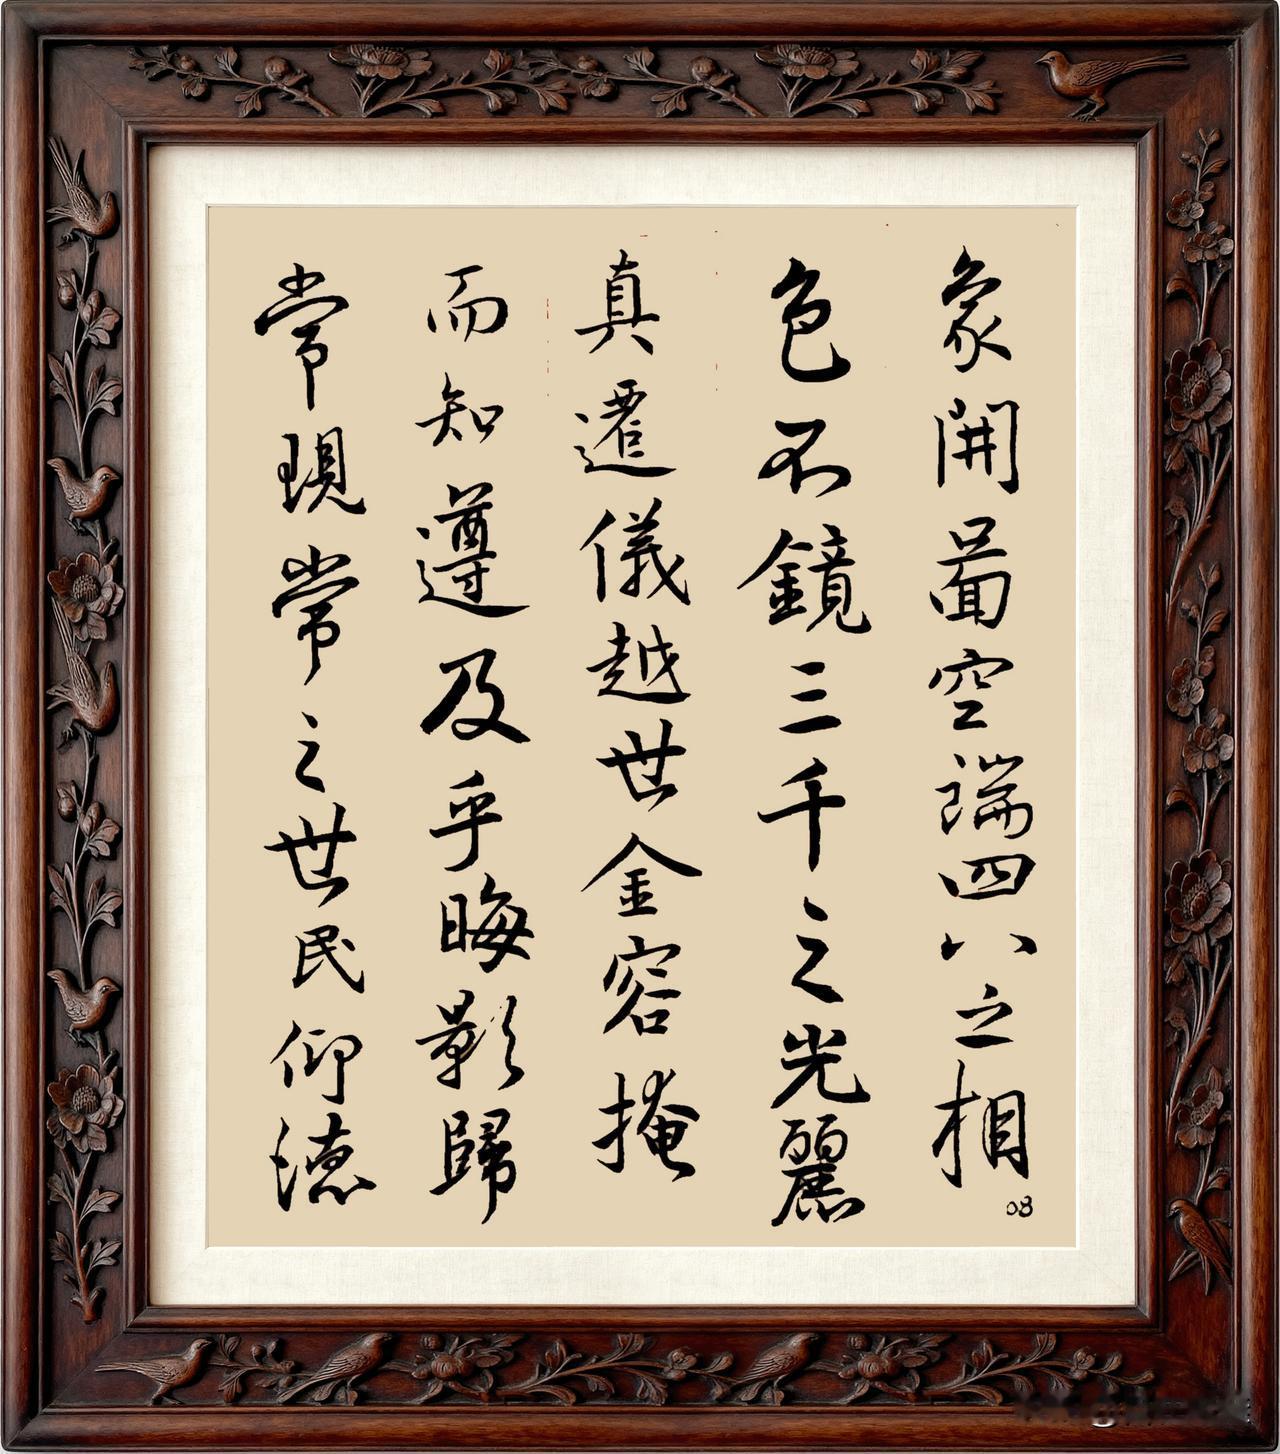 常現常之世民仰德
而知遵及乎晦影歸
真遷儀越世金容掩
色不鏡三千之光麗
象開啚空端四八之相
08